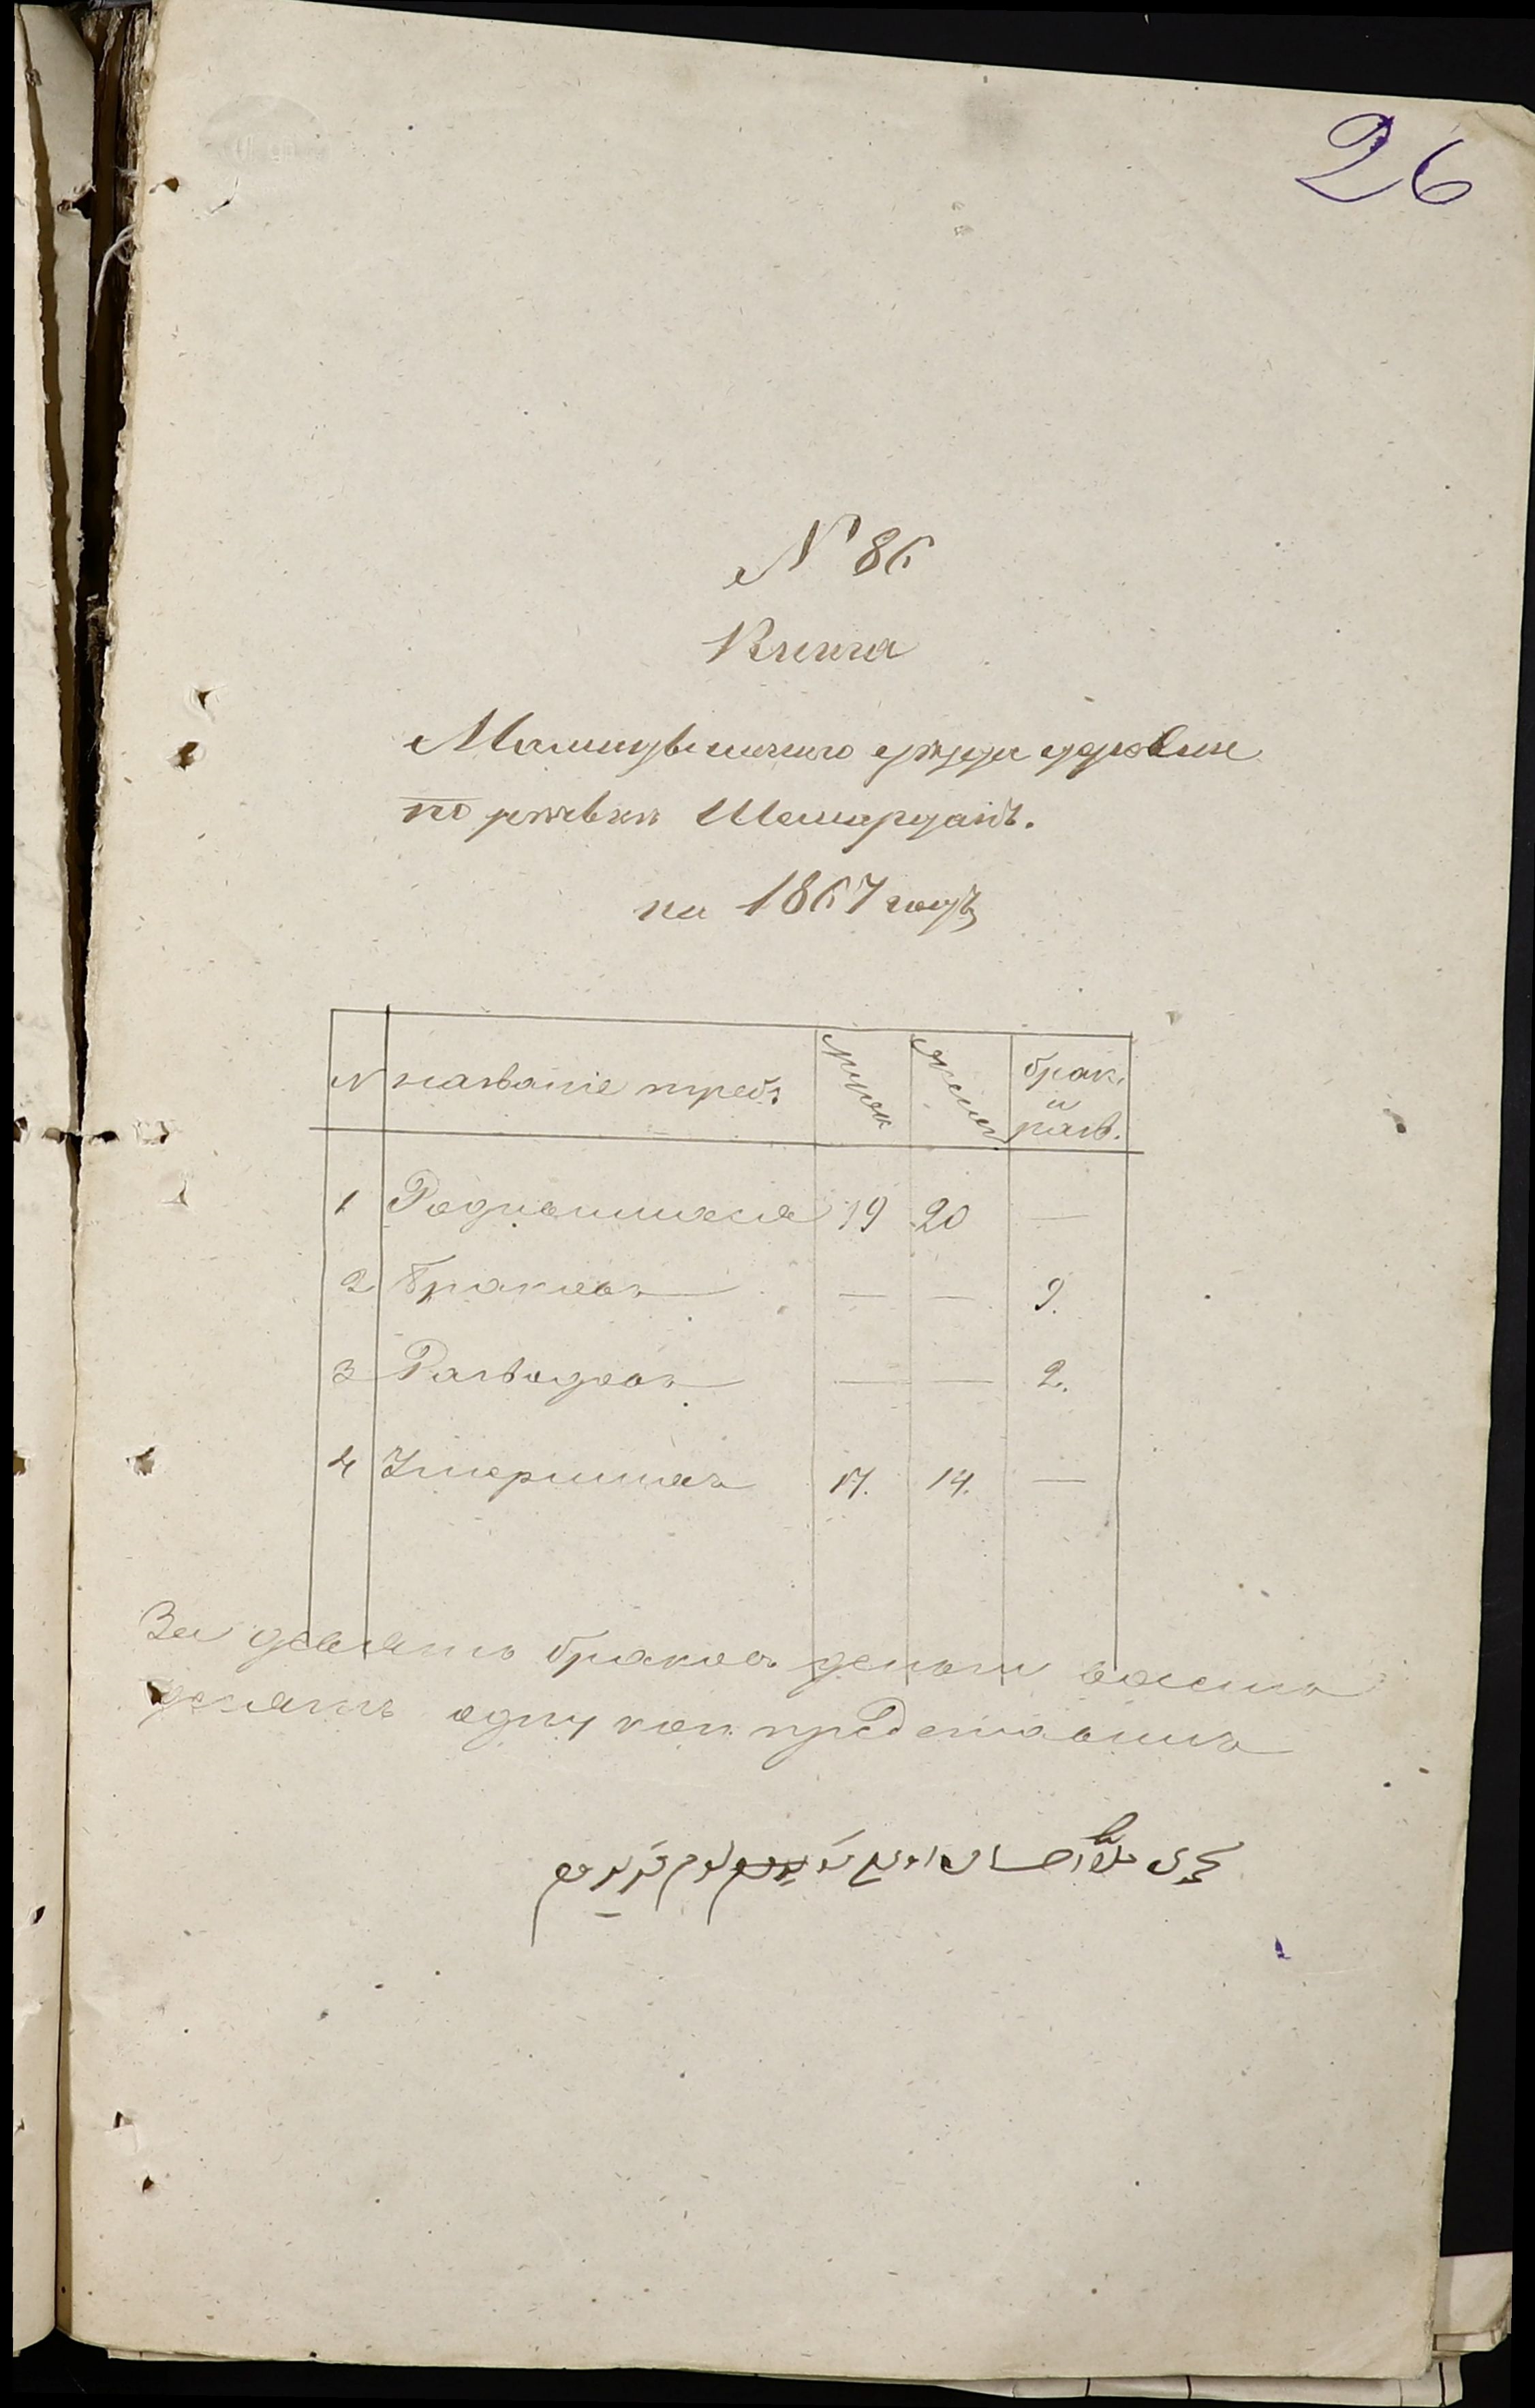 26
№ 86
Книга
Мамадышскаго уѣзда деревни
по речькѣ Шемярдань.
на 1867 годъ
№ названіе требъ мужск женск брак. и разв.
1 Родившихся 19 20 —
2 Браковъ — — 9.
3 Разводовъ — — 2.
4 Умершихъ 17. 14. —
За девять браковъ деньги восемь
десятъ одну коп. представилъ